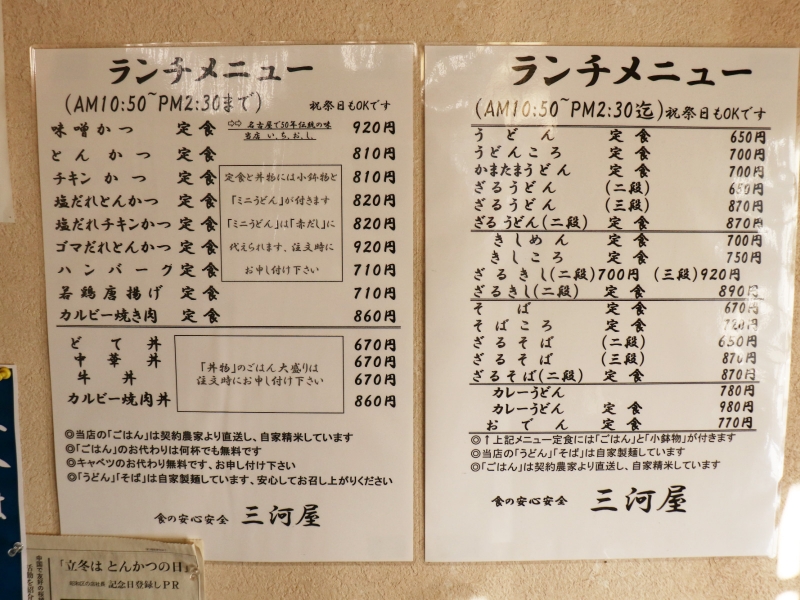 ランチメニュー
(AM10:50~PM2:30まで) 祝祭日もOKです
味噌かつ 定食 ⇨⇨名古屋で50年伝統の味 当店 い.ち.お.し. 920円
とんかつ 定食 810円
チキンかつ 定食 810円
塩だれとんかつ 定食 820円
塩だれチキンかつ 定食 820円
ゴマだれとんかつ 定食 920円
ハンバーグ 定食 710円
若鶏唐揚げ 定食 710円
カルビー焼き肉 定食 860円
定食と丼物には小鉢物と
「ミニうどん」が付きます
「ミニうどん」は「赤だし」に
代えられます、注文時に
お申し付け下さい
どて丼 670円
中華丼 670円
牛丼 670円
カルビー焼肉丼 860円
「丼物」のごはん大盛りは
注文時にお申し付け下さい
◎当店の「ごはん」は契約農家より直送し、自家精米しています
◎「ごはん」のお代わりは何杯でも無料です
◎キャベツのお代わり無料です、お申し付け下さい
◎「うどん」「そば」は自家製麺しています、安心してお召し上がりください
食の安心安全 三河屋
ランチメニュー
(AM10:50~PM2:30迄)祝祭日もOKです
うどん 定食 650円
うどんころ 定食 700円
かまたまうどん 定食 700円
ざるうどん (二段) 650円
ざるうどん (三段) 870円
ざるうどん(二段) 定食 870円
きしめん 定食 700円
きしころ 定食 750円
ざるきし(二段)700円 (三段)920円
ざるきし(二段) 定食 890円
そば 定食 670円
そばころ 定食 720円
ざるそば (二段) 650円
ざるそば (三段) 870円
ざるそば(二段) 定食 870円
カレーうどん 780円
カレーうどん 定食 980円
おでん 定食 770円
◎↑上記メニュー定食には「ごはん」と「小鉢物」が付きます
◎当店の「うどん」「そば」は自家製麺しています
◎「ごはん」は契約農家より直送し、自家精米しています
食の安心安全 三河屋
「立冬はとんかつの日」
記念日登録しPR